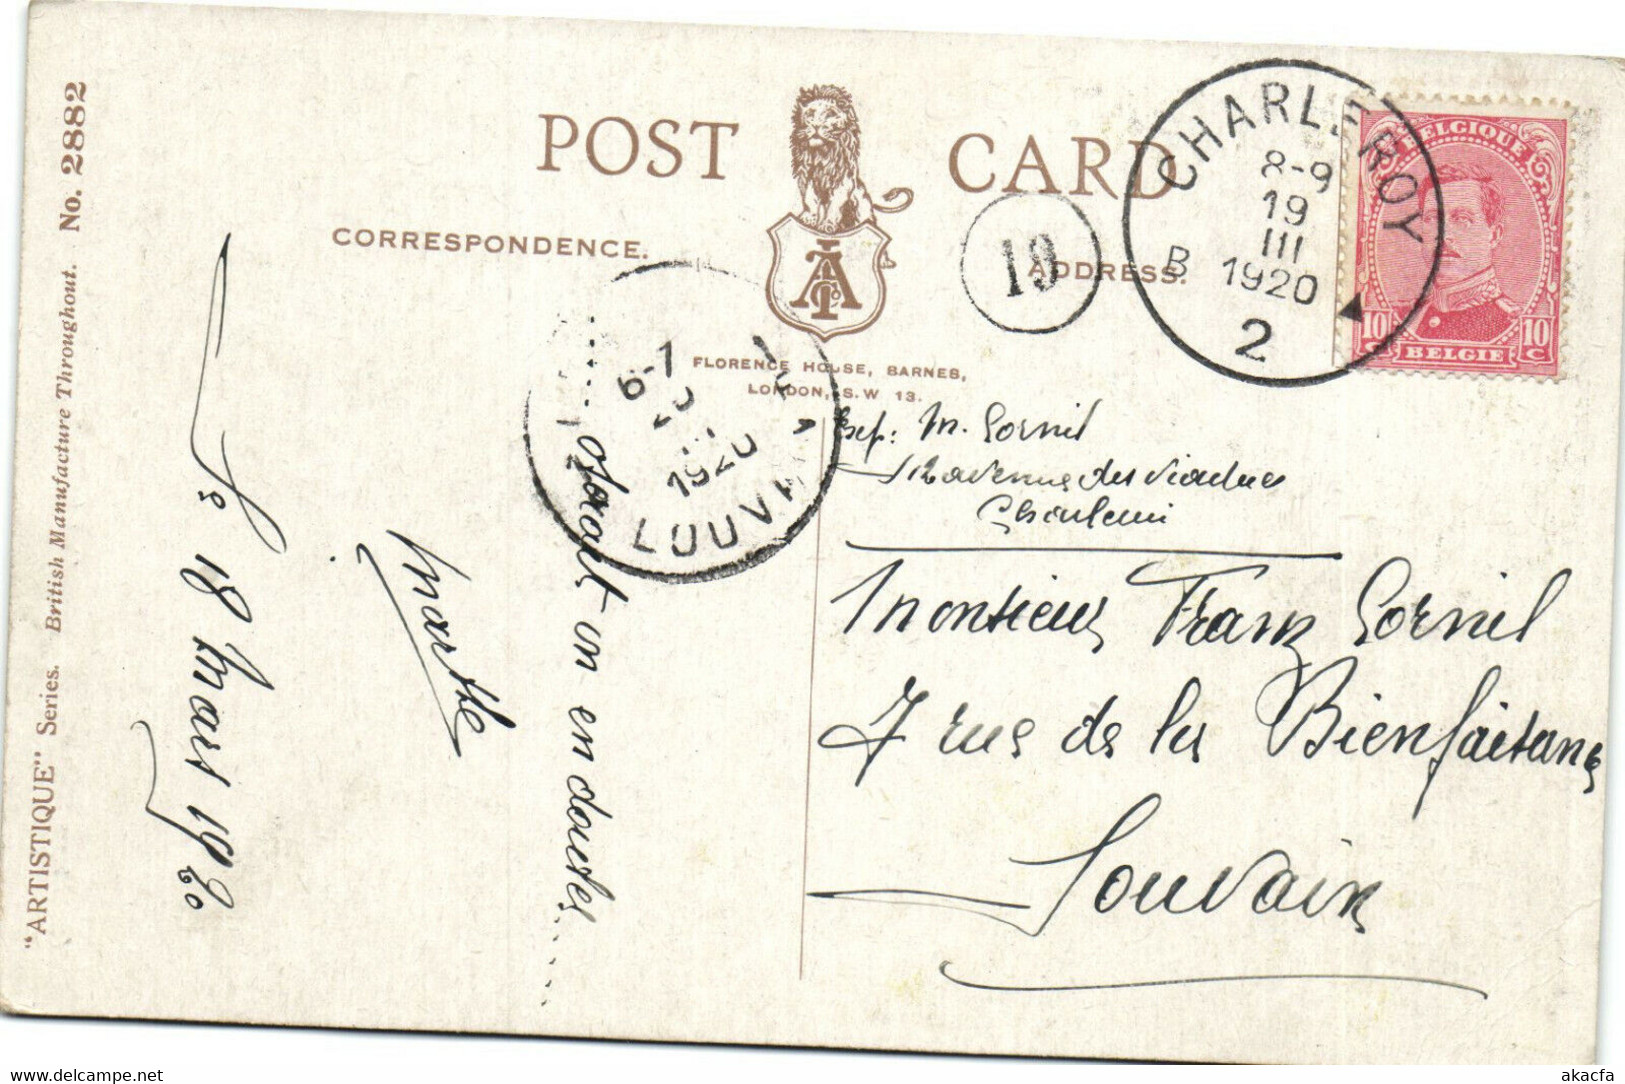 POST CARD
CORRESPONDENCE.
ADDRESS.
FLORENCE HOUSE, BARNES,
LONDON, S.W 13.
"ARTISTIQUE" Series. British Manufacture Throughout. No. 2882
CHARLEROY
8-9
19
III
1920
B
2
19
BELGIQUE
10 10
C C
BELGIE
6-7
1920
LOUV
Exp: M. Cornil
12 avenue des Viaducs
Monsieur Franz Cornil
7 rue de la Bienfaisance
Louvain
en doutes....
Marthe
Le 18 Mars 1920
akacfa